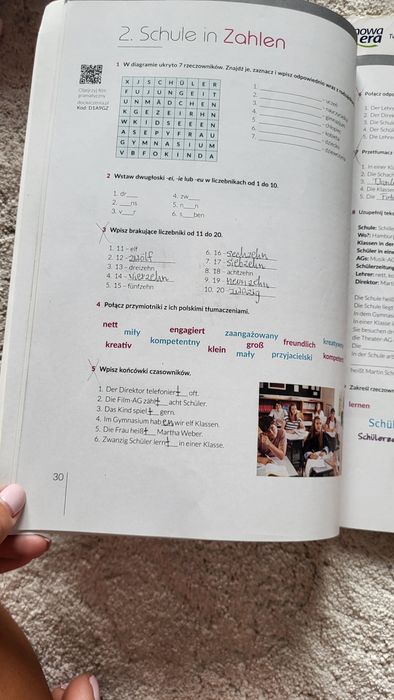 2. Schule in Zahlen
Obejrzyj film
gramatyczny
docwiczenia.pl
Kod: D5A9GZ
1 W diagramie ukryto 7 rzeczowników. Znajdź je, zaznacz i wpisz odpowiednio wraz z
X J S C H Ü L E R
F U J U N G E I T
U N M Ä D C H E N
K G E Z E I R H N
W K I D S E E E N
A S E P Y F R A U
G Y M N A S I U M
V B F O K I N D A
1.
2. - uczeń
3.
4.
5.
6.
7.
2 Wstaw dwugłoski -ei, -ie lub -eu w liczebnikach od 1 do 10.
1. dr 4. zw
2. ns 5. n n
3. v r 6. s ben
3 Wpisz brakujące liczebniki od 11 do 20.
1. 11 – elf 6. 16 – sechzehn
2. 12 – zwölf 7. 17 – siebzehn
3. 13 – dreizehn 8. 18 – achtzehn
4. 14 – vierzehn 9. 19 – neunzehn
5. 15 – fünfzehn 10. 20 – zwanzig
4 Połącz przymiotniki z ich polskimi tłumaczeniami.
nett engagiert zaangażowany
miły freundlich kreatywny
kreatív kompetentny groß
klein mały przyjacielski kompetent
5 Wpisz końcówki czasowników.
1. Der Direktor telefoniert oft.
2. Die Film-AG zählt acht Schüler.
3. Das Kind spielt gern.
4. Im Gymnasium haben wir elf Klassen.
5. Die Frau heißt Martha Weber.
6. Zwanzig Schüler lernt in einer Klasse.
30
nowa
era
Połącz odpo
1. Der Lehre
2. Der Direk
3. Die Schül
4. Der Schül
5. Die Lehre
7 Przetłumacz
1. In einer Kl
2. Die Schach
3.
4. Die Klasse
5. Die
8 Uzupełnij teks
Schule: Schill
Wo?: Hamburg
Klassen in der
Schüler in eine
AGs: Musik-AG
Schülerzeitung
Lehrer: nett, k
Direktor: Mart
Die Schule heiß
Die Schule liegt
In dem Gymnas
In einer Klasse i
Sie besuchen d
die Theater-AG
Die
In der Schule arb
heißt Martin Sch
Zakreśl rzeczown
lernen
Schül
Schülerze